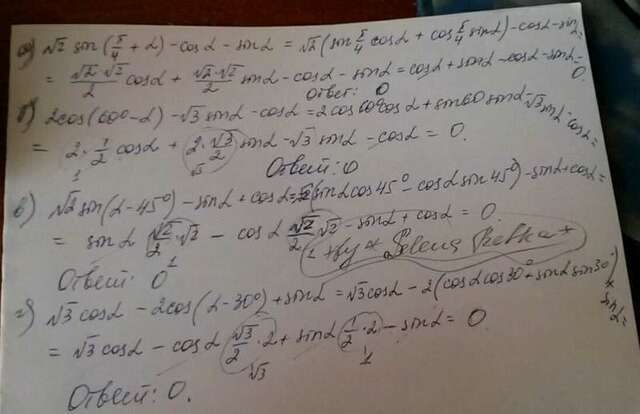 а) √2 sin(π/4 + α) - cosα - sinα = √2 (sin π/4 cosα + cos π/4 sinα) - cosα - sinα =
= √2·√2/2 cosα + √2·√2/2 sinα - cosα - sinα = cosα + sinα - cosα - sinα = 0.
Ответ: 0
б) 2cos(60°-α) - √3 sinα - cosα = 2cos60°cosα + sin60 sinα - √3 sinα - cosα =
= 2·1/2 cosα + 2·√3/2 sinα - √3 sinα - cosα = 0.
1 √3
Ответ: 0
в) √2 sin(α-45°) - sinα + cosα = (sinα cos45° - cosα sin45°) - sinα + cosα =
= sinα √2/2·√2 - cosα √2/2 √2 - sinα + cosα = 0.
1
Ответ: 0
г) √3 cosα - 2cos(α-30°) + sinα = √3 cosα - 2(cosα cos30° + sinα sin30°) + sinα =
= √3 cosα - cosα √3/2·2 + sinα 1/2·2 - sinα = 0.
√3 1
Ответ: 0.